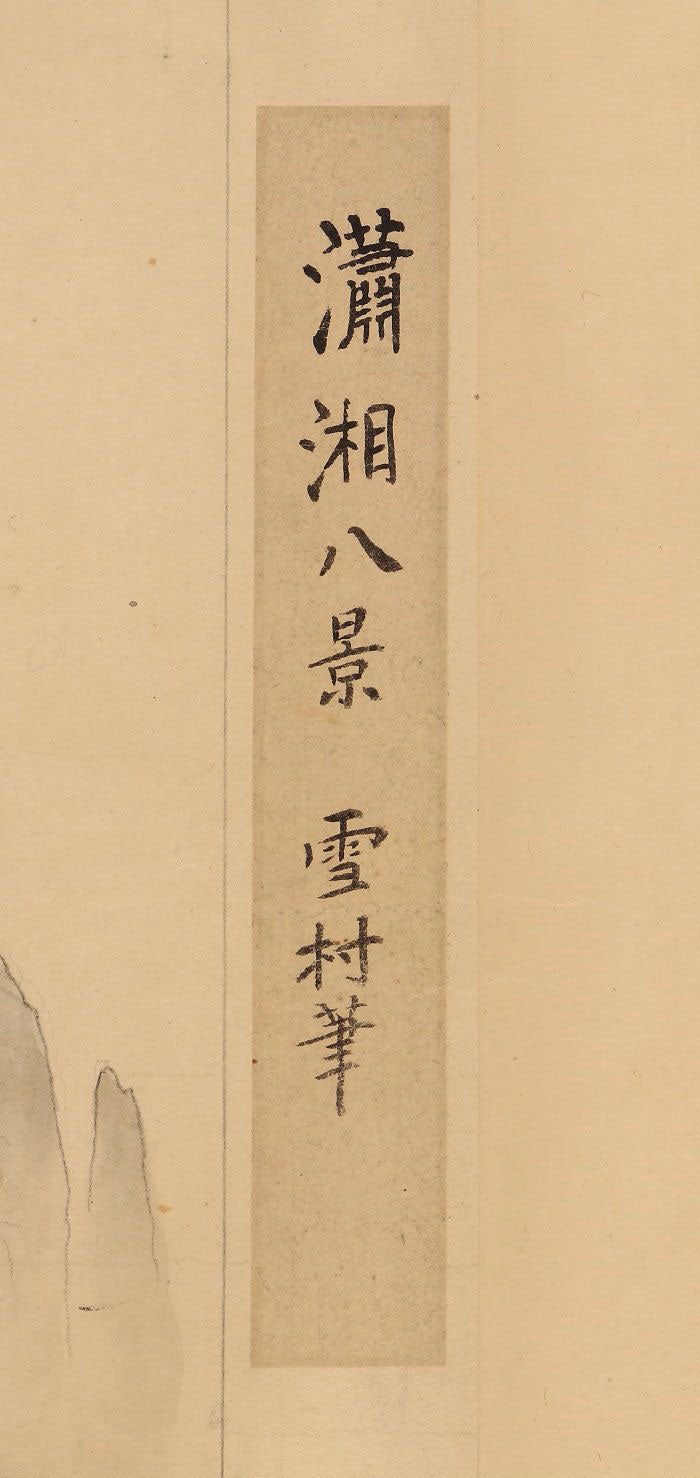 瀟湘八景　雪村筆